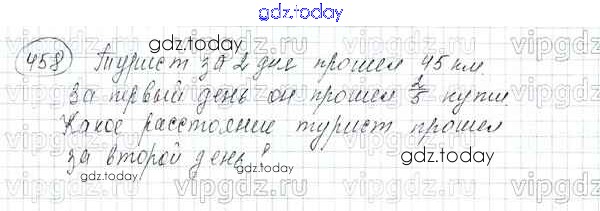 gdz.today
458 Турист за 2 дня прошел 45 км.
За первый день он прошел 2/5 пути.
Какое расстояние турист прошел
за второй день?
gdz.today
gdz.today
gdz.today
gdz.today